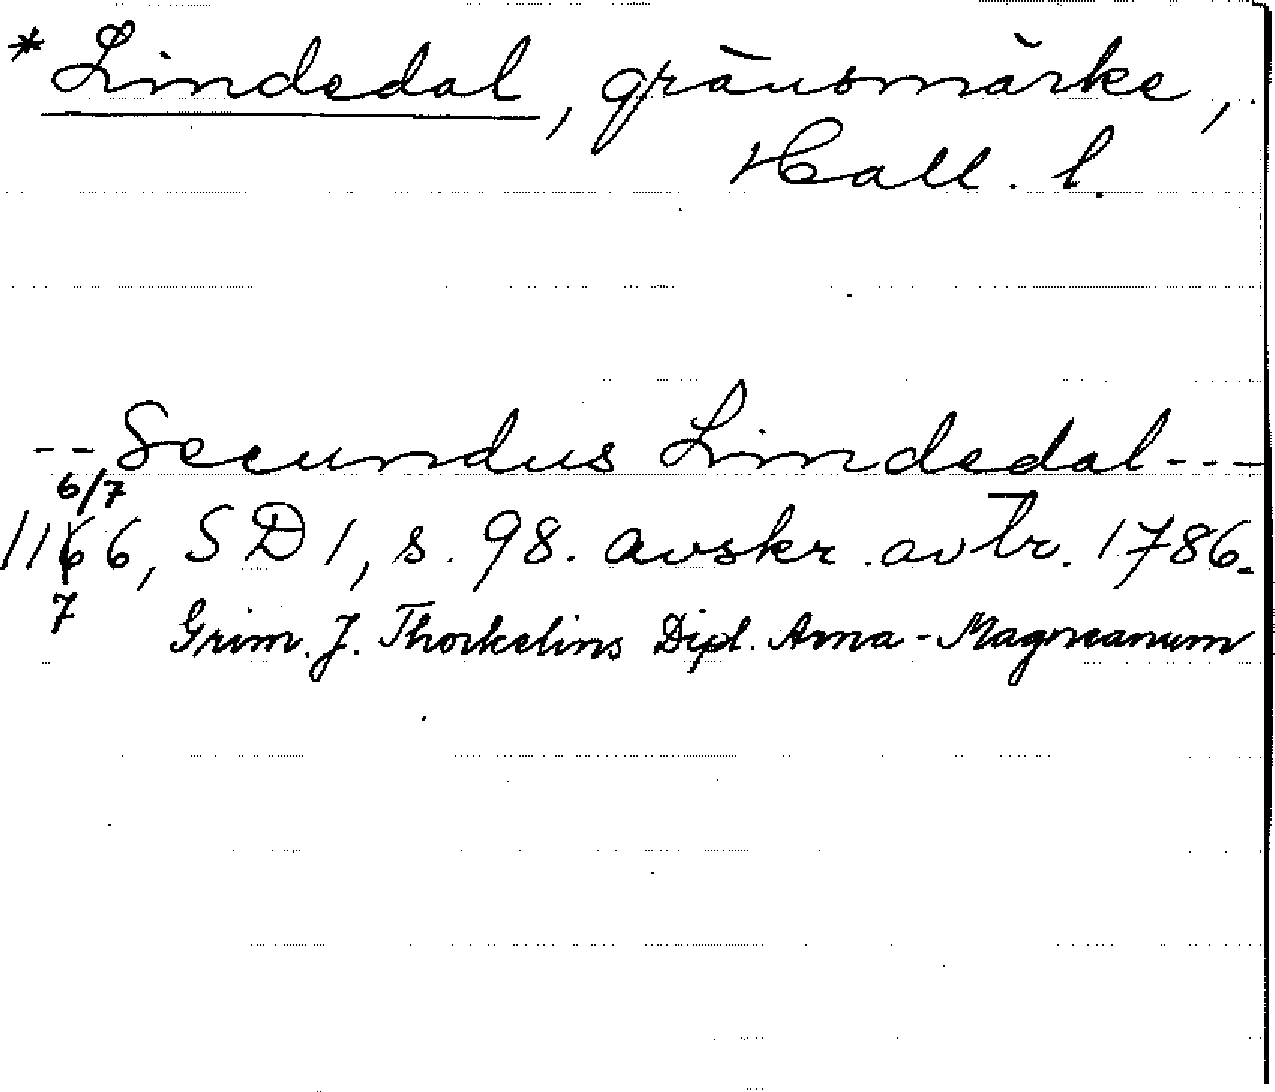 * Lindedal, gränsmärke,
Hall. l.
-- Secundus Lindedal---
6/7
1166, SD 1, s. 98. avskr. av tr. 1786.
7
Grim. J. Thorkelins Dipl. Arna-Magneanum